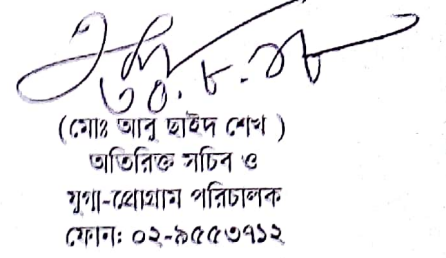 ৩০.৮.১৮
(মোঃ আবু ছাইদ শেখ )
অতিরিক্ত সচিব ও
যুগ্ম-প্রোগ্রাম পরিচালক
ফোনঃ ০২-৯৫৫৩৭১২